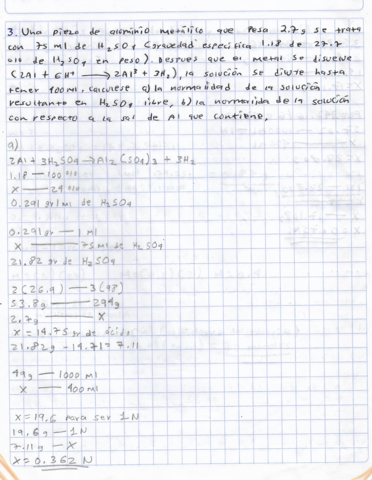 3. Una pieza de aluminio metálico que pesa 2.7 g se trata
con 75 ml de H2SO4 (gravedad específica 1.18 de 27.7
o/o de H2SO4 en peso). Después que el metal se disuelve
(2Al + 6H+ → 2Al3 + 3H2), la solución se diluye hasta
tener 400 ml, calculese a) la normalidad de la solución
resultante en H2SO4 libre, b) la normalida de la solución
con respecto a la sal de Al que contiene.
a)
2Al + 3H2SO4 → Al2(SO4)3 + 3H2
1.18 — 100 o/o
x — 24 o/o
0.291 gr/ml de H2SO4
0.291 gr — 1 ml
x — 75 ml de H2SO4
21.82 gr de H2SO4
2(26.9) — 3(98)
53.8g — 294g
2.7g — x
x = 14.75 gr de ácido
21.82g - 14.71 = 7.11
49g — 1000 ml
x — 400 ml
x = 19.6 para ser 1N
19.6g — 1N
7.11g — x
x = 0.362 N